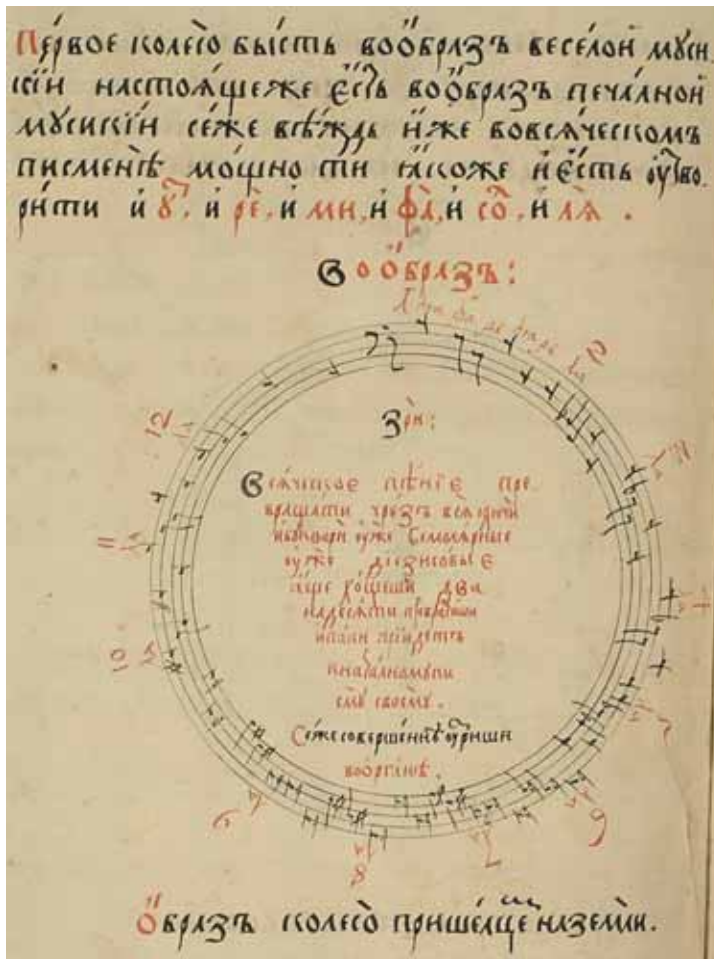 Пе́рвое колесо̀ бы́сть воо́бразъ весе́лой мꙋси
кі́и настоѧ́щеже є҆́сть воо́бразъ печа́лной
мꙋсикі́и се́же вѣ́ждь и҆́же вовсѧ́ческомъ
писменѣ̀ мо́щно ти ꙗ҆́коже и҆ є҆́сть ᲂу҆тво
ри́ти и҆ у҆̀, и҆ рѐ, и҆ ми, и҆ фа̀, и҆ со̀, и҆ лѧ̀.
Воо́бразъ:
Зрѝ:
Всѧ́ческое пѣ́нїе пре
вращати чрезъ всѧ
ᲂу҆же бемолѧрные
ᲂу҆же дїезисовые
а҆́ще хо́щеши два
надесѧти
прїидетъ
и начална́му пи
смꙋ своемꙋ.
Се́же соверше́ннѣ ᲂу҆́зриши
воо́рганѣ.
12
11
10
9
8
7
6
О҆́бразъ колесо̀ прише́дще на землѝ.